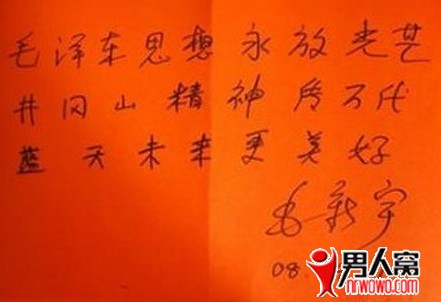 毛泽东思想永放光芒
井冈山精神传万代
蓝天未来更美好
毛新宇
08.
男人窝
nrwowo.com